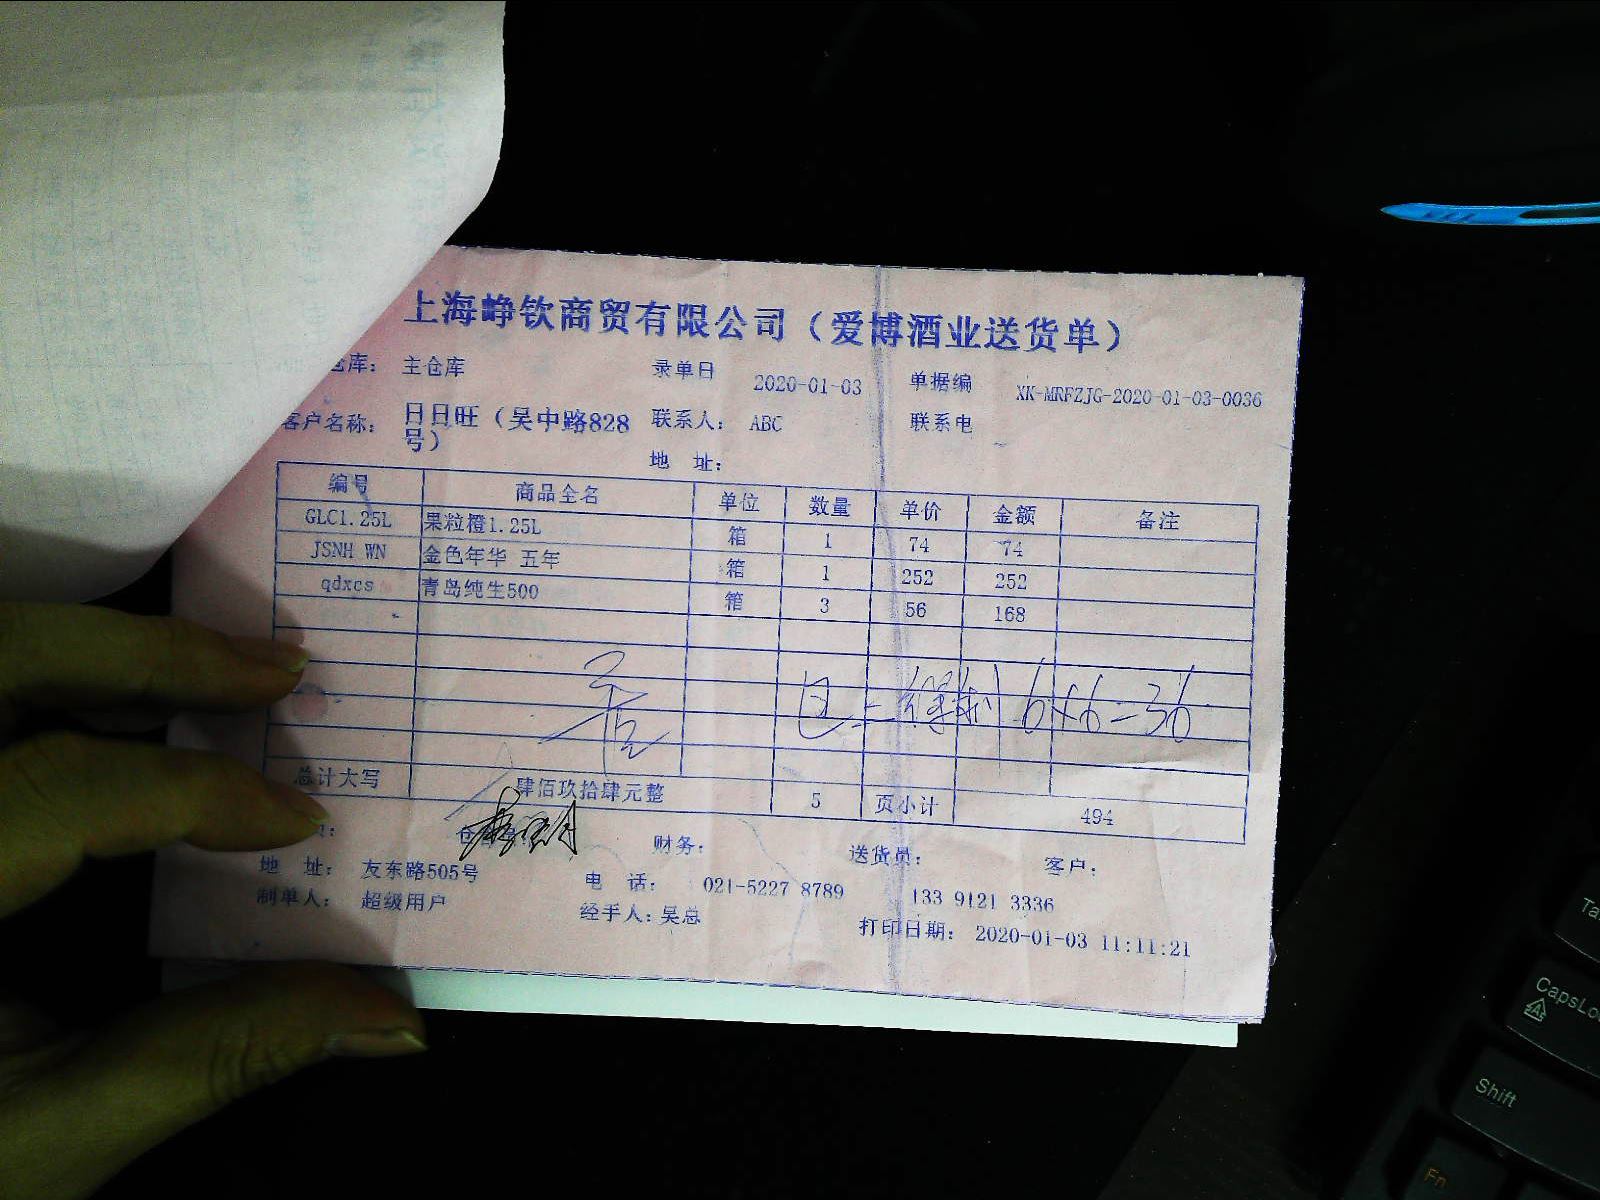 上海峥钦商贸有限公司（爱博酒业送货单）
仓库： 主仓库 录单日 2020-01-03 单据编 XK-MRFZJG-2020-01-03-0036
客户名称： 日日旺（吴中路828号） 联系人： ABC 联系电
地 址：
编号 商品全名 单位 数量 单价 金额 备注
GLC1.25L 果粒橙1.25L 箱 1 74 74
JSNH WN 金色年华 五年 箱 1 252 252
qdxcs 青岛纯生500 箱 3 56 168
6×6=36
总计大写 肆佰玖拾肆元整 5 页小计 494
财务： 送货员： 客户：
地 址： 友东路505号 电 话： 021-5227 8789 133 9121 3336
制单人： 超级用户 经手人：吴总 打印日期： 2020-01-03 11:11:21
CapsLo
Shift
Fn